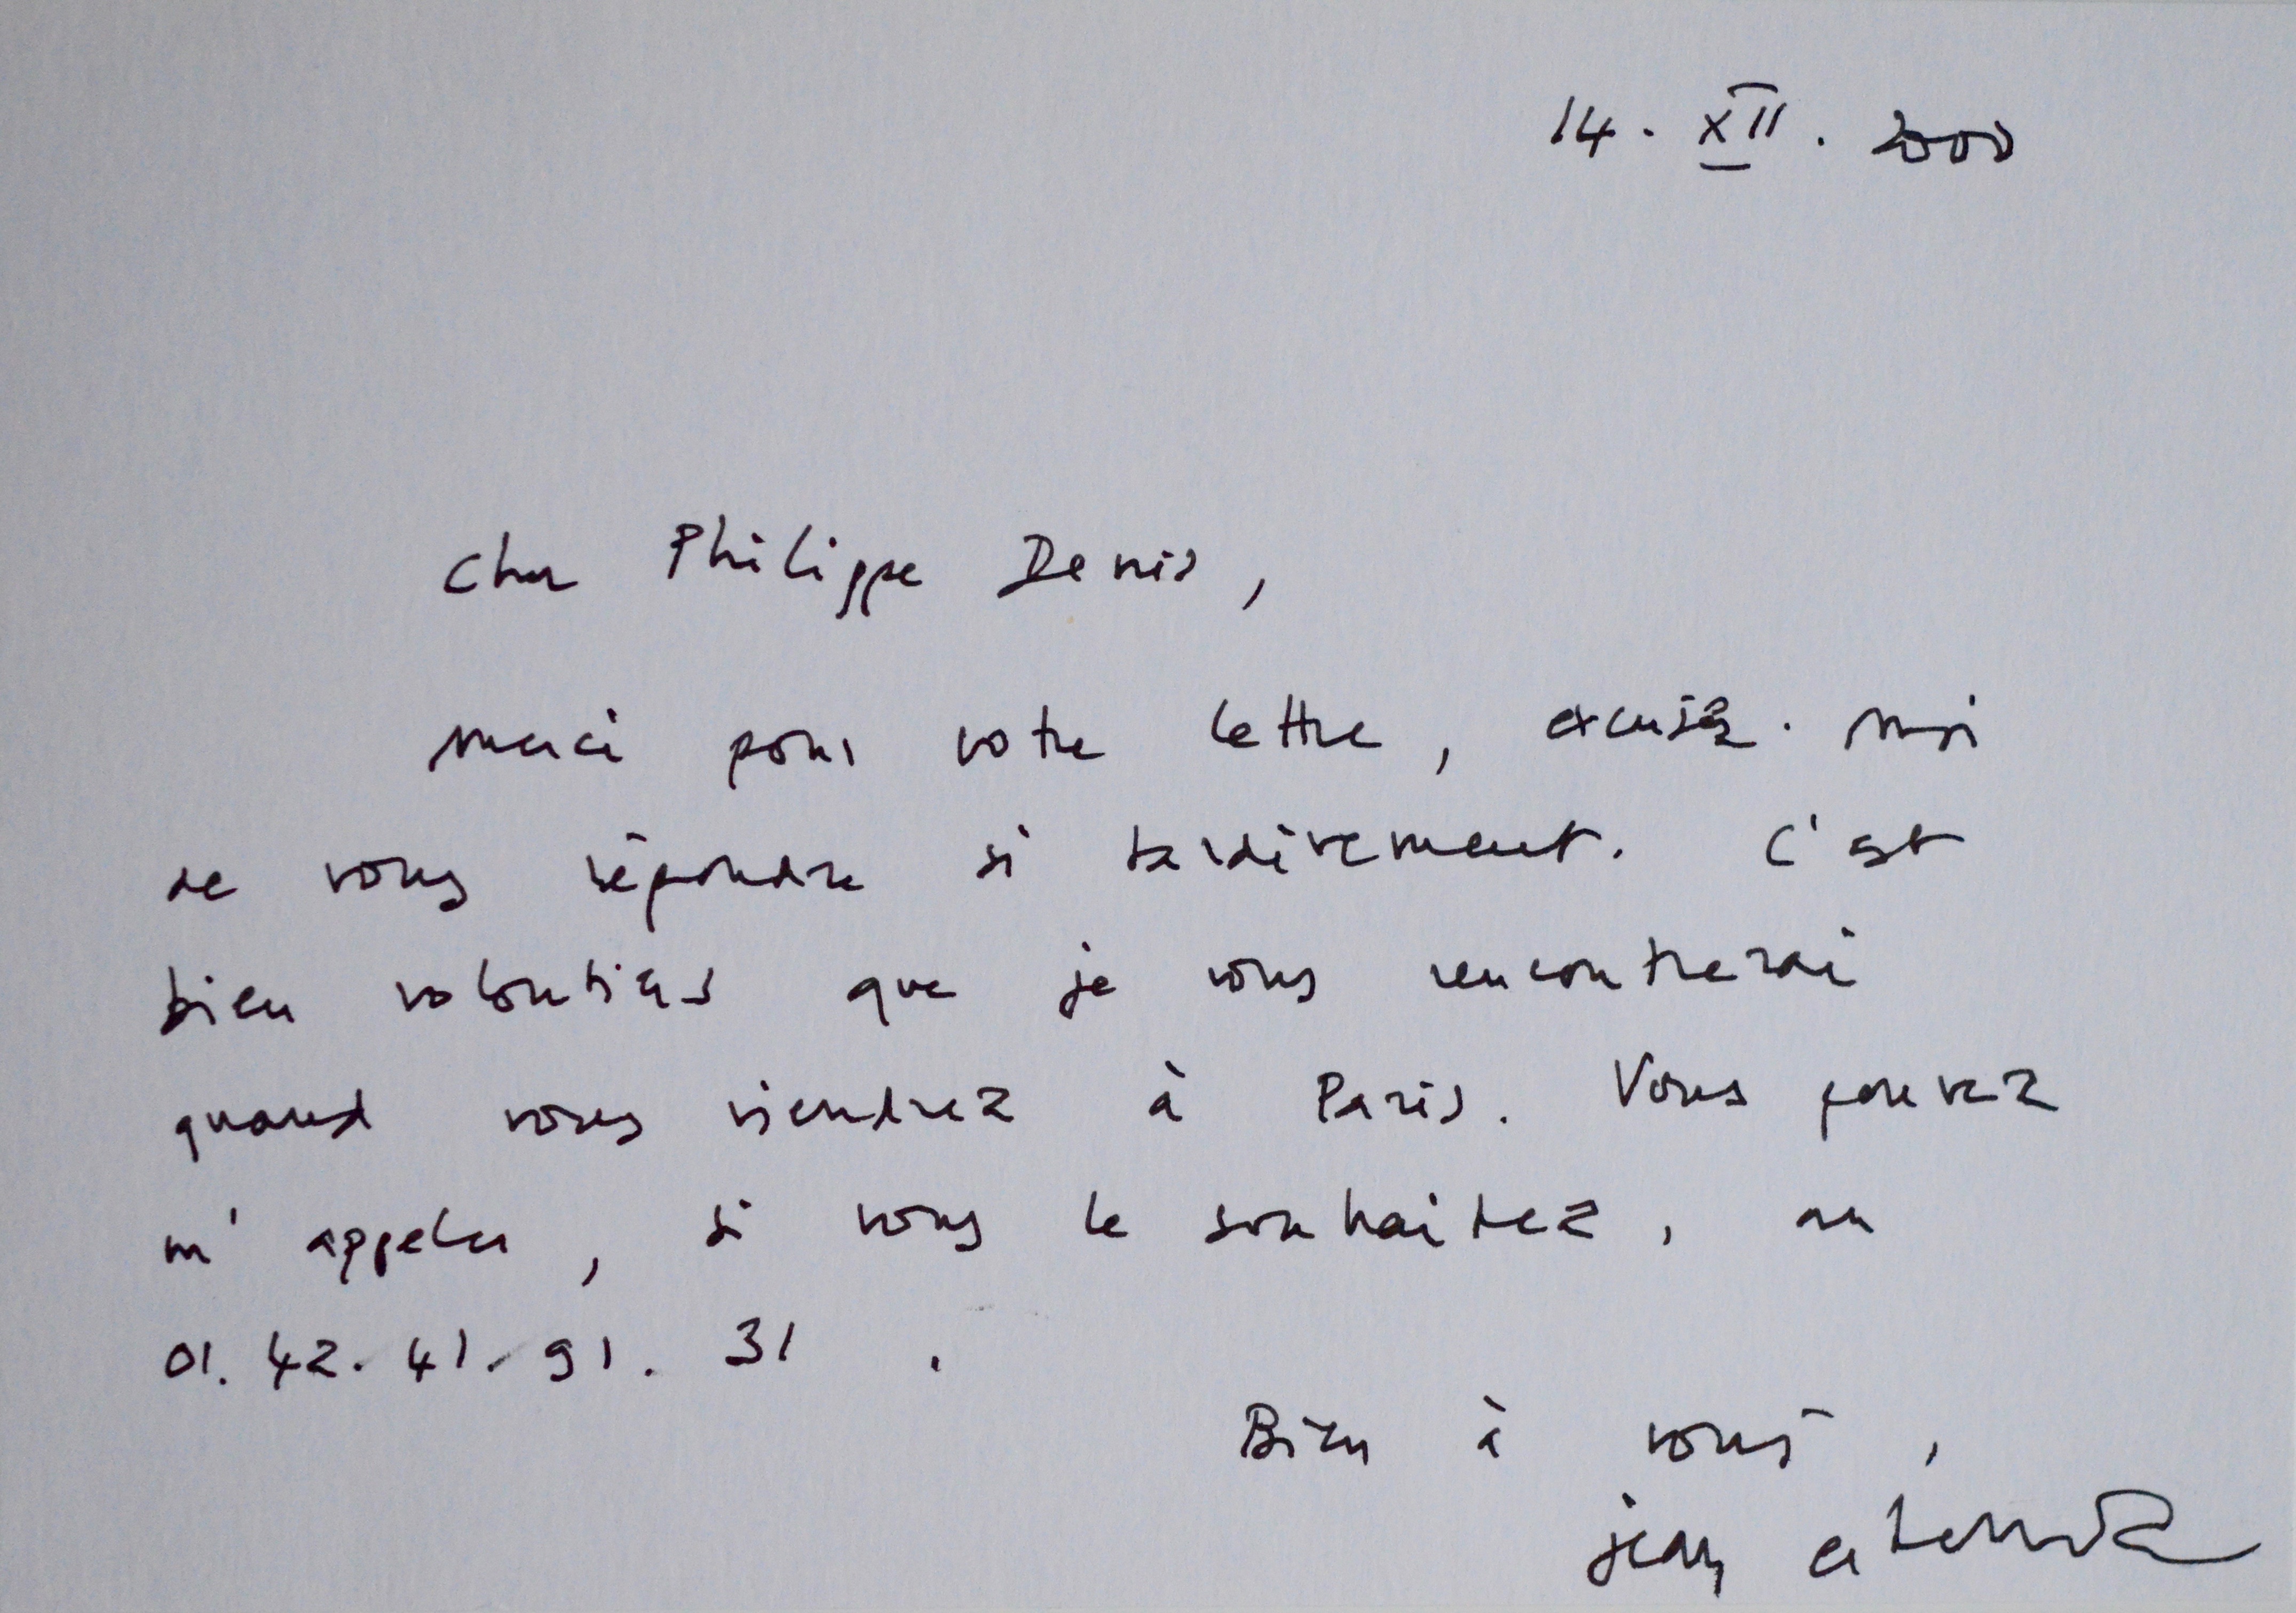 14. XII. 2000
Cher Philippe Denis,
merci pour votre lettre, excusez-moi
de vous répondre si tardivement. C'est
bien volontiers que je vous rencontrerai
quand vous viendrez à Paris. Vous pouvez
m'appeler, si vous le souhaitez, au
01. 42. 41. 91. 31 .
Bien à vous,
jean